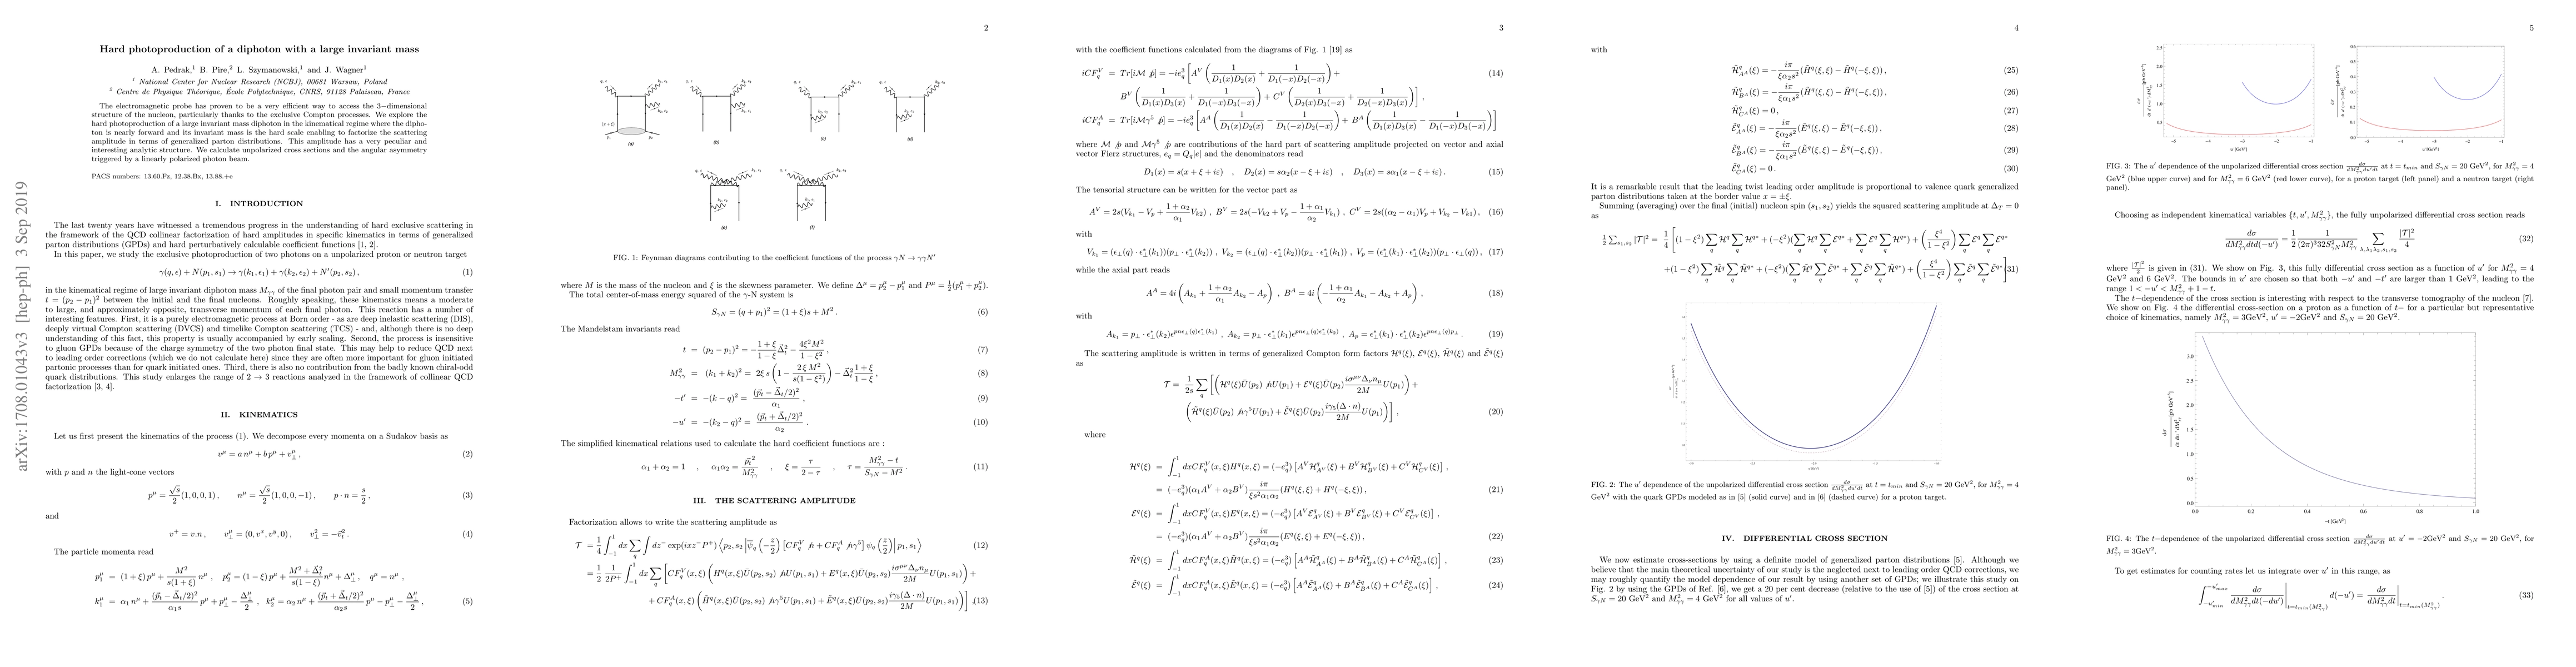 arXiv:1708.01043v3 [hep-ph] 3 Sep 2019
Hard photoproduction of a diphoton with a large invariant mass
A. Pedrak,¹ B. Pire,² L. Szymanowski,¹ and J. Wagner¹
¹ National Center for Nuclear Research (NCBJ), 00681 Warsaw, Poland
² Centre de Physique Théorique, École Polytechnique, CNRS, 91128 Palaiseau, France
The electromagnetic probe has proven to be a very efficient way to access the 3−dimensional
structure of the nucleon, particularly thanks to the exclusive Compton processes. We explore the
hard photoproduction of a large invariant mass diphoton in the kinematical regime where the dipho-
ton is nearly forward and its invariant mass is the hard scale enabling to factorize the scattering
amplitude in terms of generalized parton distributions. This amplitude has a very peculiar and
interesting analytic structure. We calculate unpolarized cross sections and the angular asymmetry
triggered by a linearly polarized photon beam.
PACS numbers: 13.60.Fz, 12.38.Bx, 13.88.+e
I. INTRODUCTION
The last twenty years have witnessed a tremendous progress in the understanding of hard exclusive scattering in
the framework of the QCD collinear factorization of hard amplitudes in specific kinematics in terms of generalized
parton distributions (GPDs) and hard perturbatively calculable coefficient functions [1, 2].
In this paper, we study the exclusive photoproduction of two photons on a unpolarized proton or neutron target
γ(q, ϵ) + N(p₁, s₁) → γ(k₁, ϵ₁) + γ(k₂, ϵ₂) + N′(p₂, s₂) , (1)
in the kinematical regime of large invariant diphoton mass M_γγ of the final photon pair and small momentum transfer
t = (p₂ − p₁)² between the initial and the final nucleons. Roughly speaking, these kinematics means a moderate
to large, and approximately opposite, transverse momentum of each final photon. This reaction has a number of
interesting features. First, it is a purely electromagnetic process at Born order - as are deep inelastic scattering (DIS),
deeply virtual Compton scattering (DVCS) and timelike Compton scattering (TCS) - and, although there is no deep
understanding of this fact, this property is usually accompanied by early scaling. Second, the process is insensitive
to gluon GPDs because of the charge symmetry of the two photon final state. This may help to reduce QCD next
to leading order corrections (which we do not calculate here) since they are often more important for gluon initiated
partonic processes than for quark initiated ones. Third, there is also no contribution from the badly known chiral-odd
quark distributions. This study enlarges the range of 2 → 3 reactions analyzed in the framework of collinear QCD
factorization [3, 4].
II. KINEMATICS
Let us first present the kinematics of the process (1). We decompose every momenta on a Sudakov basis as
v^μ = a n^μ + b p^μ + v_⊥^μ , (2)
with p and n the light-cone vectors
p^μ = √s/2 (1, 0, 0, 1) , n^μ = √s/2 (1, 0, 0, −1) , p · n = s/2 , (3)
and
v⁺ = v.n , v_⊥^μ = (0, v^x, v^y, 0) , v_⊥² = −v⃗_t² . (4)
The particle momenta read
p₁^μ = (1 + ξ) p^μ + M²/(s(1 + ξ)) n^μ , p₂^μ = (1 − ξ) p^μ + (M² + Δ⃗_t²)/(s(1 − ξ)) n^μ + Δ_⊥^μ , q^μ = n^μ ,
k₁^μ = α₁ n^μ + (p⃗_t − Δ⃗_t/2)²/(α₁s) p^μ + p_⊥^μ − Δ_⊥^μ/2 , k₂^μ = α₂ n^μ + (p⃗_t + Δ⃗_t/2)²/(α₂s) p^μ − p_⊥^μ − Δ_⊥^μ/2 , (5)
2
(a) (b) (c) (d)
(e) (f)
FIG. 1: Feynman diagrams contributing to the coefficient functions of the process γN → γγN′
where M is the mass of the nucleon and ξ is the skewness parameter. We define Δ^μ = p₂^μ − p₁^μ and P^μ = ½(p₁^μ + p₂^μ).
The total center-of-mass energy squared of the γ-N system is
S_γN = (q + p₁)² = (1 + ξ)s + M² . (6)
The Mandelstam invariants read
t = (p₂ − p₁)² = −(1 + ξ)/(1 − ξ) Δ⃗_t² − 4ξ²M²/(1 − ξ²) , (7)
M²_γγ = (k₁ + k₂)² = 2ξ s (1 − 2 ξ M²/(s(1 − ξ²))) − Δ⃗_t² (1 + ξ)/(1 − ξ) , (8)
−t′ = −(k − q)² = (p⃗_t − Δ⃗_t/2)²/α₁ , (9)
−u′ = −(k₂ − q)² = (p⃗_t + Δ⃗_t/2)²/α₂ . (10)
The simplified kinematical relations used to calculate the hard coefficient functions are :
α₁ + α₂ = 1 , α₁α₂ = p⃗_t²/M²_γγ , ξ = τ/(2 − τ) , τ = (M²_γγ − t)/(S_γN − M²) . (11)
III. THE SCATTERING AMPLITUDE
Factorization allows to write the scattering amplitude as
𝒯 = 1/4 ∫₋₁¹ dx ∑_q ∫ dz⁻ exp(ixz⁻P⁺) ⟨p₂, s₂ |ψ̄_q (−z/2) [CF_q^V n̸ + CF_q^A n̸γ⁵] ψ_q (z/2)| p₁, s₁⟩ (12)
= 1/2 1/(2P⁺) ∫₋₁¹ dx ∑_q [CF_q^V(x, ξ) (H^q(x, ξ)Ū(p₂, s₂) n̸U(p₁, s₁) + E^q(x, ξ)Ū(p₂, s₂) iσ^{μν}Δ_νn_μ/2M U(p₁, s₁)) +
+ CF_q^A(x, ξ) (H̃^q(x, ξ)Ū(p₂, s₂) n̸γ⁵U(p₁, s₁) + Ẽ^q(x, ξ)Ū(p₂, s₂) iγ₅(Δ · n)/2M U(p₁, s₁))] ,(13)
3
with the coefficient functions calculated from the diagrams of Fig. 1 [19] as
iCF_q^V = Tr[iℳ p̸] = −ie_q³ [A^V (1/(D₁(x)D₂(x)) + 1/(D₁(−x)D₂(−x))) + (14)
B^V (1/(D₁(x)D₃(x)) + 1/(D₁(−x)D₃(−x))) + C^V (1/(D₂(x)D₃(−x)) + 1/(D₂(−x)D₃(x)))] ,
iCF_q^A = Tr[iℳγ⁵ p̸] = −ie_q³ [A^A (1/(D₁(x)D₂(x)) − 1/(D₁(−x)D₂(−x))) + B^A (1/(D₁(x)D₃(x)) − 1/(D₁(−x)D₃(−x)))]
where ℳ p̸ and ℳγ⁵ p̸ are contributions of the hard part of scattering amplitude projected on vector and axial
vector Fierz structures, e_q = Q_q|e| and the denominators read
D₁(x) = s(x + ξ + iε) , D₂(x) = sα₂(x − ξ + iε) , D₃(x) = sα₁(x − ξ + iε) . (15)
The tensorial structure can be written for the vector part as
A^V = 2s(V_k₁ − V_p + (1 + α₂)/α₁ V_k2) , B^V = 2s(−V_k2 + V_p − (1 + α₁)/α₂ V_k₁) , C^V = 2s((α₂ − α₁)V_p + V_k₂ − V_k1) , (16)
with
V_k₁ = (ϵ_⊥(q) · ϵ*_⊥(k₁))(p_⊥ · ϵ*_⊥(k₂)) , V_k₂ = (ϵ_⊥(q) · ϵ*_⊥(k₂))(p_⊥ · ϵ*_⊥(k₁)) , V_p = (ϵ*_⊥(k₁) · ϵ*_⊥(k₂))(p_⊥ · ϵ_⊥(q)) , (17)
while the axial part reads
A^A = 4i (A_k₁ + (1 + α₂)/α₁ A_k₂ − A_p) , B^A = 4i (−(1 + α₁)/α₂ A_k₁ − A_k₂ + A_p) , (18)
with
A_k₁ = p_⊥ · ϵ*_⊥(k₂)ϵ^{pnϵ_⊥(q)ϵ*_⊥(k₁)} , A_k₂ = p_⊥ · ϵ*_⊥(k₁)ϵ^{pnϵ_⊥(q)ϵ*_⊥(k₂)} , A_p = ϵ*_⊥(k₁) · ϵ*_⊥(k₂)ϵ^{pnϵ_⊥(q)p_⊥} . (19)
The scattering amplitude is written in terms of generalized Compton form factors ℋ^q(ξ), ℰ^q(ξ), ℋ̃^q(ξ) and ℰ̃^q(ξ)
as
𝒯 = 1/2s ∑_q [(ℋ^q(ξ)Ū(p₂) n̸U(p₁) + ℰ^q(ξ)Ū(p₂) iσ^{μν}Δ_νn_μ/2M U(p₁)) +
(ℋ̃^q(ξ)Ū(p₂) n̸γ⁵U(p₁) + ℰ̃^q(ξ)Ū(p₂) iγ₅(Δ · n)/2M U(p₁))] , (20)
where
ℋ^q(ξ) = ∫₋₁¹ dxCF_q^V(x, ξ)H^q(x, ξ) = (−e_q³) [A^V ℋ^q_{A^V}(ξ) + B^V ℋ^q_{B^V}(ξ) + C^V ℋ^q_{C^V}(ξ)] ,
= (−e_q³)(α₁A^V + α₂B^V) iπ/(ξs²α₁α₂) (H^q(ξ, ξ) + H^q(−ξ, ξ)) , (21)
ℰ^q(ξ) = ∫₋₁¹ dxCF_q^V(x, ξ)E^q(x, ξ) = (−e_q³) [A^V ℰ^q_{A^V}(ξ) + B^V ℰ^q_{B^V}(ξ) + C^V ℰ^q_{C^V}(ξ)] ,
= (−e_q³)(α₁A^V + α₂B^V) iπ/(ξs²α₁α₂) (E^q(ξ, ξ) + E^q(−ξ, ξ)) , (22)
ℋ̃^q(ξ) = ∫₋₁¹ dxCF_q^A(x, ξ)H̃^q(x, ξ) = (−e_q³) [A^A ℋ̃^q_{A^A}(ξ) + B^A ℋ̃^q_{B^A}(ξ) + C^A ℋ̃^q_{C^A}(ξ)] , (23)
ℰ̃^q(ξ) = ∫₋₁¹ dxCF_q^A(x, ξ)Ẽ^q(x, ξ) = (−e_q³) [A^A ℰ̃^q_{A^A}(ξ) + B^A ℰ̃^q_{B^A}(ξ) + C^A ℰ̃^q_{C^A}(ξ)] , (24)
4
with
ℋ̃^q_{A^A}(ξ) = − iπ/(ξα₂s²) (H̃^q(ξ, ξ) − H̃^q(−ξ, ξ)) , (25)
ℋ̃^q_{B^A}(ξ) = − iπ/(ξα₁s²) (H̃^q(ξ, ξ) − H̃^q(−ξ, ξ)) , (26)
ℋ̃^q_{C^A}(ξ) = 0 , (27)
ℰ̃^q_{A^A}(ξ) = − iπ/(ξα₂s²) (Ẽ^q(ξ, ξ) − Ẽ^q(−ξ, ξ)) , (28)
ℰ̃^q_{B^A}(ξ) = − iπ/(ξα₁s²) (Ẽ^q(ξ, ξ) − Ẽ^q(−ξ, ξ)) , (29)
ℰ̃^q_{C^A}(ξ) = 0 . (30)
It is a remarkable result that the leading twist leading order amplitude is proportional to valence quark generalized
parton distributions taken at the border value x = ±ξ.
Summing (averaging) over the final (initial) nucleon spin (s₁, s₂) yields the squared scattering amplitude at Δ_T = 0
as
½ ∑_{s₁s₂} |𝒯|² = 1/4 [(1 − ξ²) ∑_q ℋ^q ∑_q ℋ^q* + (−ξ²)(∑_q ℋ^q ∑_q ℰ^q* + ∑_q ℰ^q ∑_q ℋ^q*) + (ξ⁴/(1 − ξ²)) ∑_q ℰ^q ∑_q ℰ^q*
+(1 − ξ²) ∑_q ℋ̃^q ∑_q ℋ̃^q* + (−ξ²)(∑_q ℋ̃^q ∑_q ℰ̃^q* + ∑_q ℰ̃^q ∑_q ℋ̃^q*) + (ξ⁴/(1 − ξ²)) ∑_q ℰ̃^q ∑_q ℰ̃^q*] (31)
FIG. 2: The u′ dependence of the unpolarized differential cross section dσ/dM²_γγdu′dt at t = t_min and S_γN = 20 GeV², for M²_γγ = 4
GeV² with the quark GPDs modeled as in [5] (solid curve) and in [6] (dashed curve) for a proton target.
IV. DIFFERENTIAL CROSS SECTION
We now estimate cross-sections by using a definite model of generalized parton distributions [5]. Although we
believe that the main theoretical uncertainty of our study is the neglected next to leading order QCD corrections, we
may roughly quantify the model dependence of our result by using another set of GPDs; we illustrate this study on
Fig. 2 by using the GPDs of Ref. [6], we get a 20 per cent decrease (relative to the use of [5]) of the cross section at
S_γN = 20 GeV² and M²_γγ = 4 GeV² for all values of u′.
5
FIG. 3: The u′ dependence of the unpolarized differential cross section dσ/dM²_γγdu′dt at t = t_min and S_γN = 20 GeV², for M²_γγ = 4
GeV² (blue upper curve) and for M²_γγ = 6 GeV² (red lower curve), for a proton target (left panel) and a neutron target (right
panel).
Choosing as independent kinematical variables {t, u′, M²_γγ}, the fully unpolarized differential cross section reads
dσ/(dM²_γγdtd(−u′)) = 1/2 1/((2π)³32S²_γN M²_γγ) ∑_{λ,λ₁λ₂,s₁,s₂} |𝒯|²/4 (32)
where |𝒯|²/2 is given in (31). We show on Fig. 3, this fully differential cross section as a function of u′ for M²_γγ = 4
GeV² and 6 GeV². The bounds in u′ are chosen so that both −u′ and −t′ are larger than 1 GeV², leading to the
range 1 < −u′ < M²_γγ + 1 − t.
The t−dependence of the cross section is interesting with respect to the transverse tomography of the nucleon [7].
We show on Fig. 4 the differential cross-section on a proton as a function of t− for a particular but representative
choice of kinematics, namely M²_γγ = 3GeV², u′ = −2GeV² and S_γN = 20 GeV².
3.0
2.5
2.0
1.5
1.0
0.5
0.0
0.0 0.2 0.4 0.6 0.8 1.0
-t [GeV²]
FIG. 4: The t−dependence of the unpolarized differential cross section dσ/dM²_γγdu′dt at u′ = −2GeV² and S_γN = 20 GeV², for
M²_γγ = 3GeV².
To get estimates for counting rates let us integrate over u′ in this range, as
∫_{−u′_min}^{−u′_max} dσ/(dM²_γγdt(−du′)) |_{t=t_min(M²_γγ)} d(−u′) = dσ/(dM²_γγdt) |_{t=t_min(M²_γγ)} . (33)